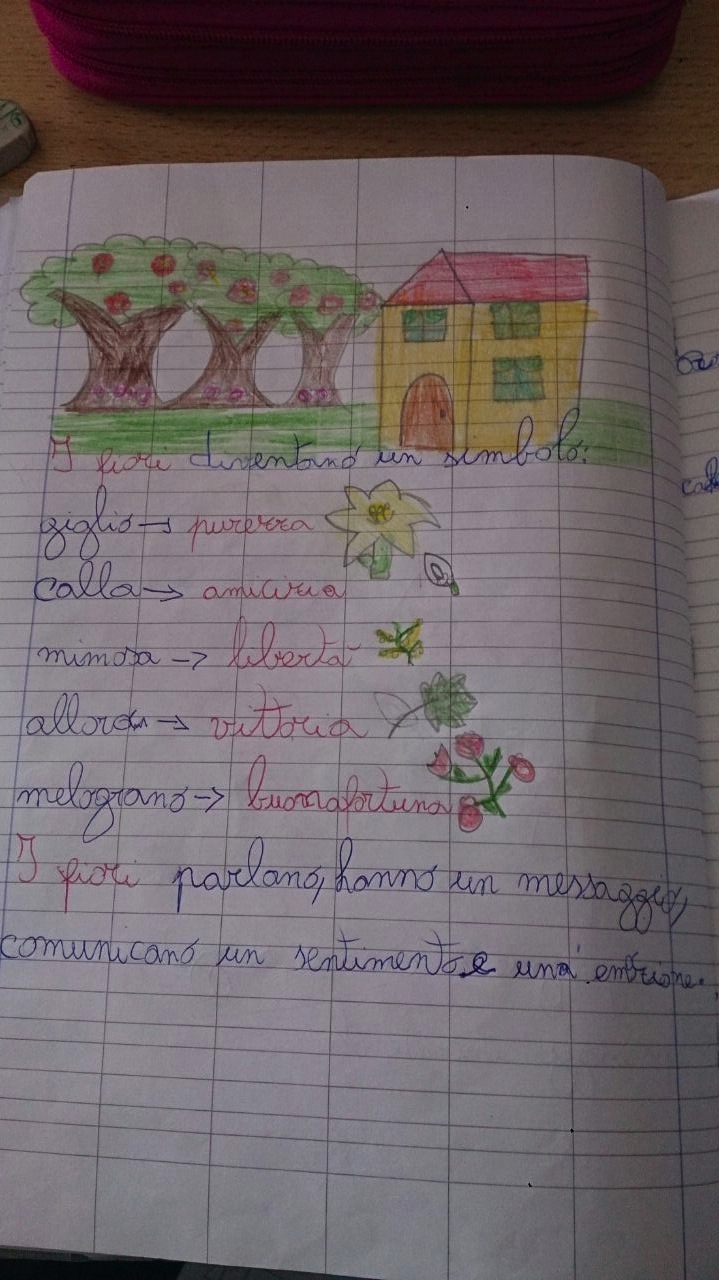 I fiori diventano un simbolo:
giglio → purezza
calla → amicizia
mimosa → libertà
alloro → vittoria
melograno → buonafortuna
I fiori parlano, hanno un messaggio,
comunicano un sentimento e una emozione.